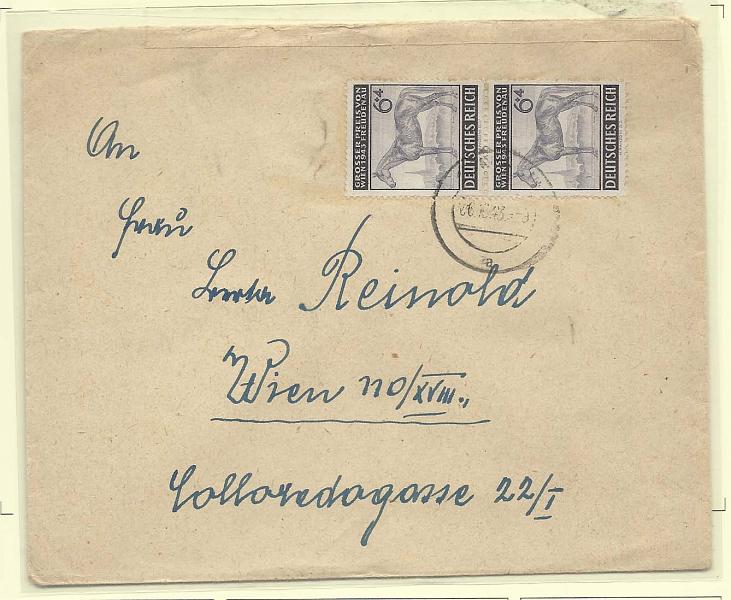 GROSSER PREIS VON
WIEN 1943 FREUDENAU
6+4
DEUTSCHES REICH
GROSSER PREIS VON
WIEN 1943 FREUDENAU
6+4
DEUTSCHES REICH
An
Frau
Berta Reinold
Wien 110/XVIII.,
Colloredogasse 22/I